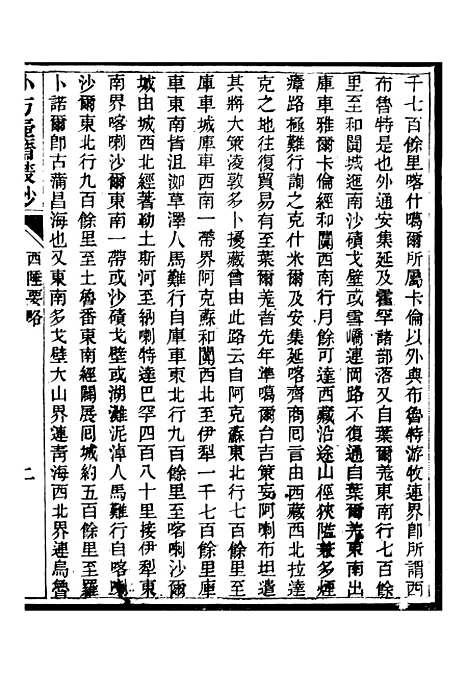 千七百餘里喀什噶爾所屬卡倫以外與布魯特游牧連界卽所謂西
布魯特是也外通安集延及霍罕諸部落又自葉爾羌東南行七百餘
里至和闐城迤南沙磧戈壁或雪嶠連岡路不復通自葉爾羌東南出
庫車雅爾卡倫經和闐西南行月餘可達西藏沿途山徑狹隘兼多煙
瘴路極難行詢之克什米爾及安集延喀齊商回言西藏西北拉達
克之地往復貿易有至葉爾羌者先年準噶爾台吉策妄阿喇布坦遣
其將大策淩敦多卜擾藏曾由此路云自阿克蘇東北行七百餘里至
庫車城庫車西南一帶界阿克蘇和闐西北至伊犁一千七百餘里庫
車東南皆沮洳草澤人馬難行自庫車東北行九百餘里至喀喇沙爾
城由城西北經著勒土斯河至納喇特達巴罕四百八十里接伊犁東
南界喀喇沙爾東南一帶或沙磧戈壁或湖灘泥淖人馬難行自喀喇
沙爾東北行九百餘里至土魯番東南經闢展回城約五百餘里至羅
卜諾爾卽古蒲昌海也又東南多戈壁大山界連靑海西北界連烏魯
小方壺齋叢鈔
西陲要略
二